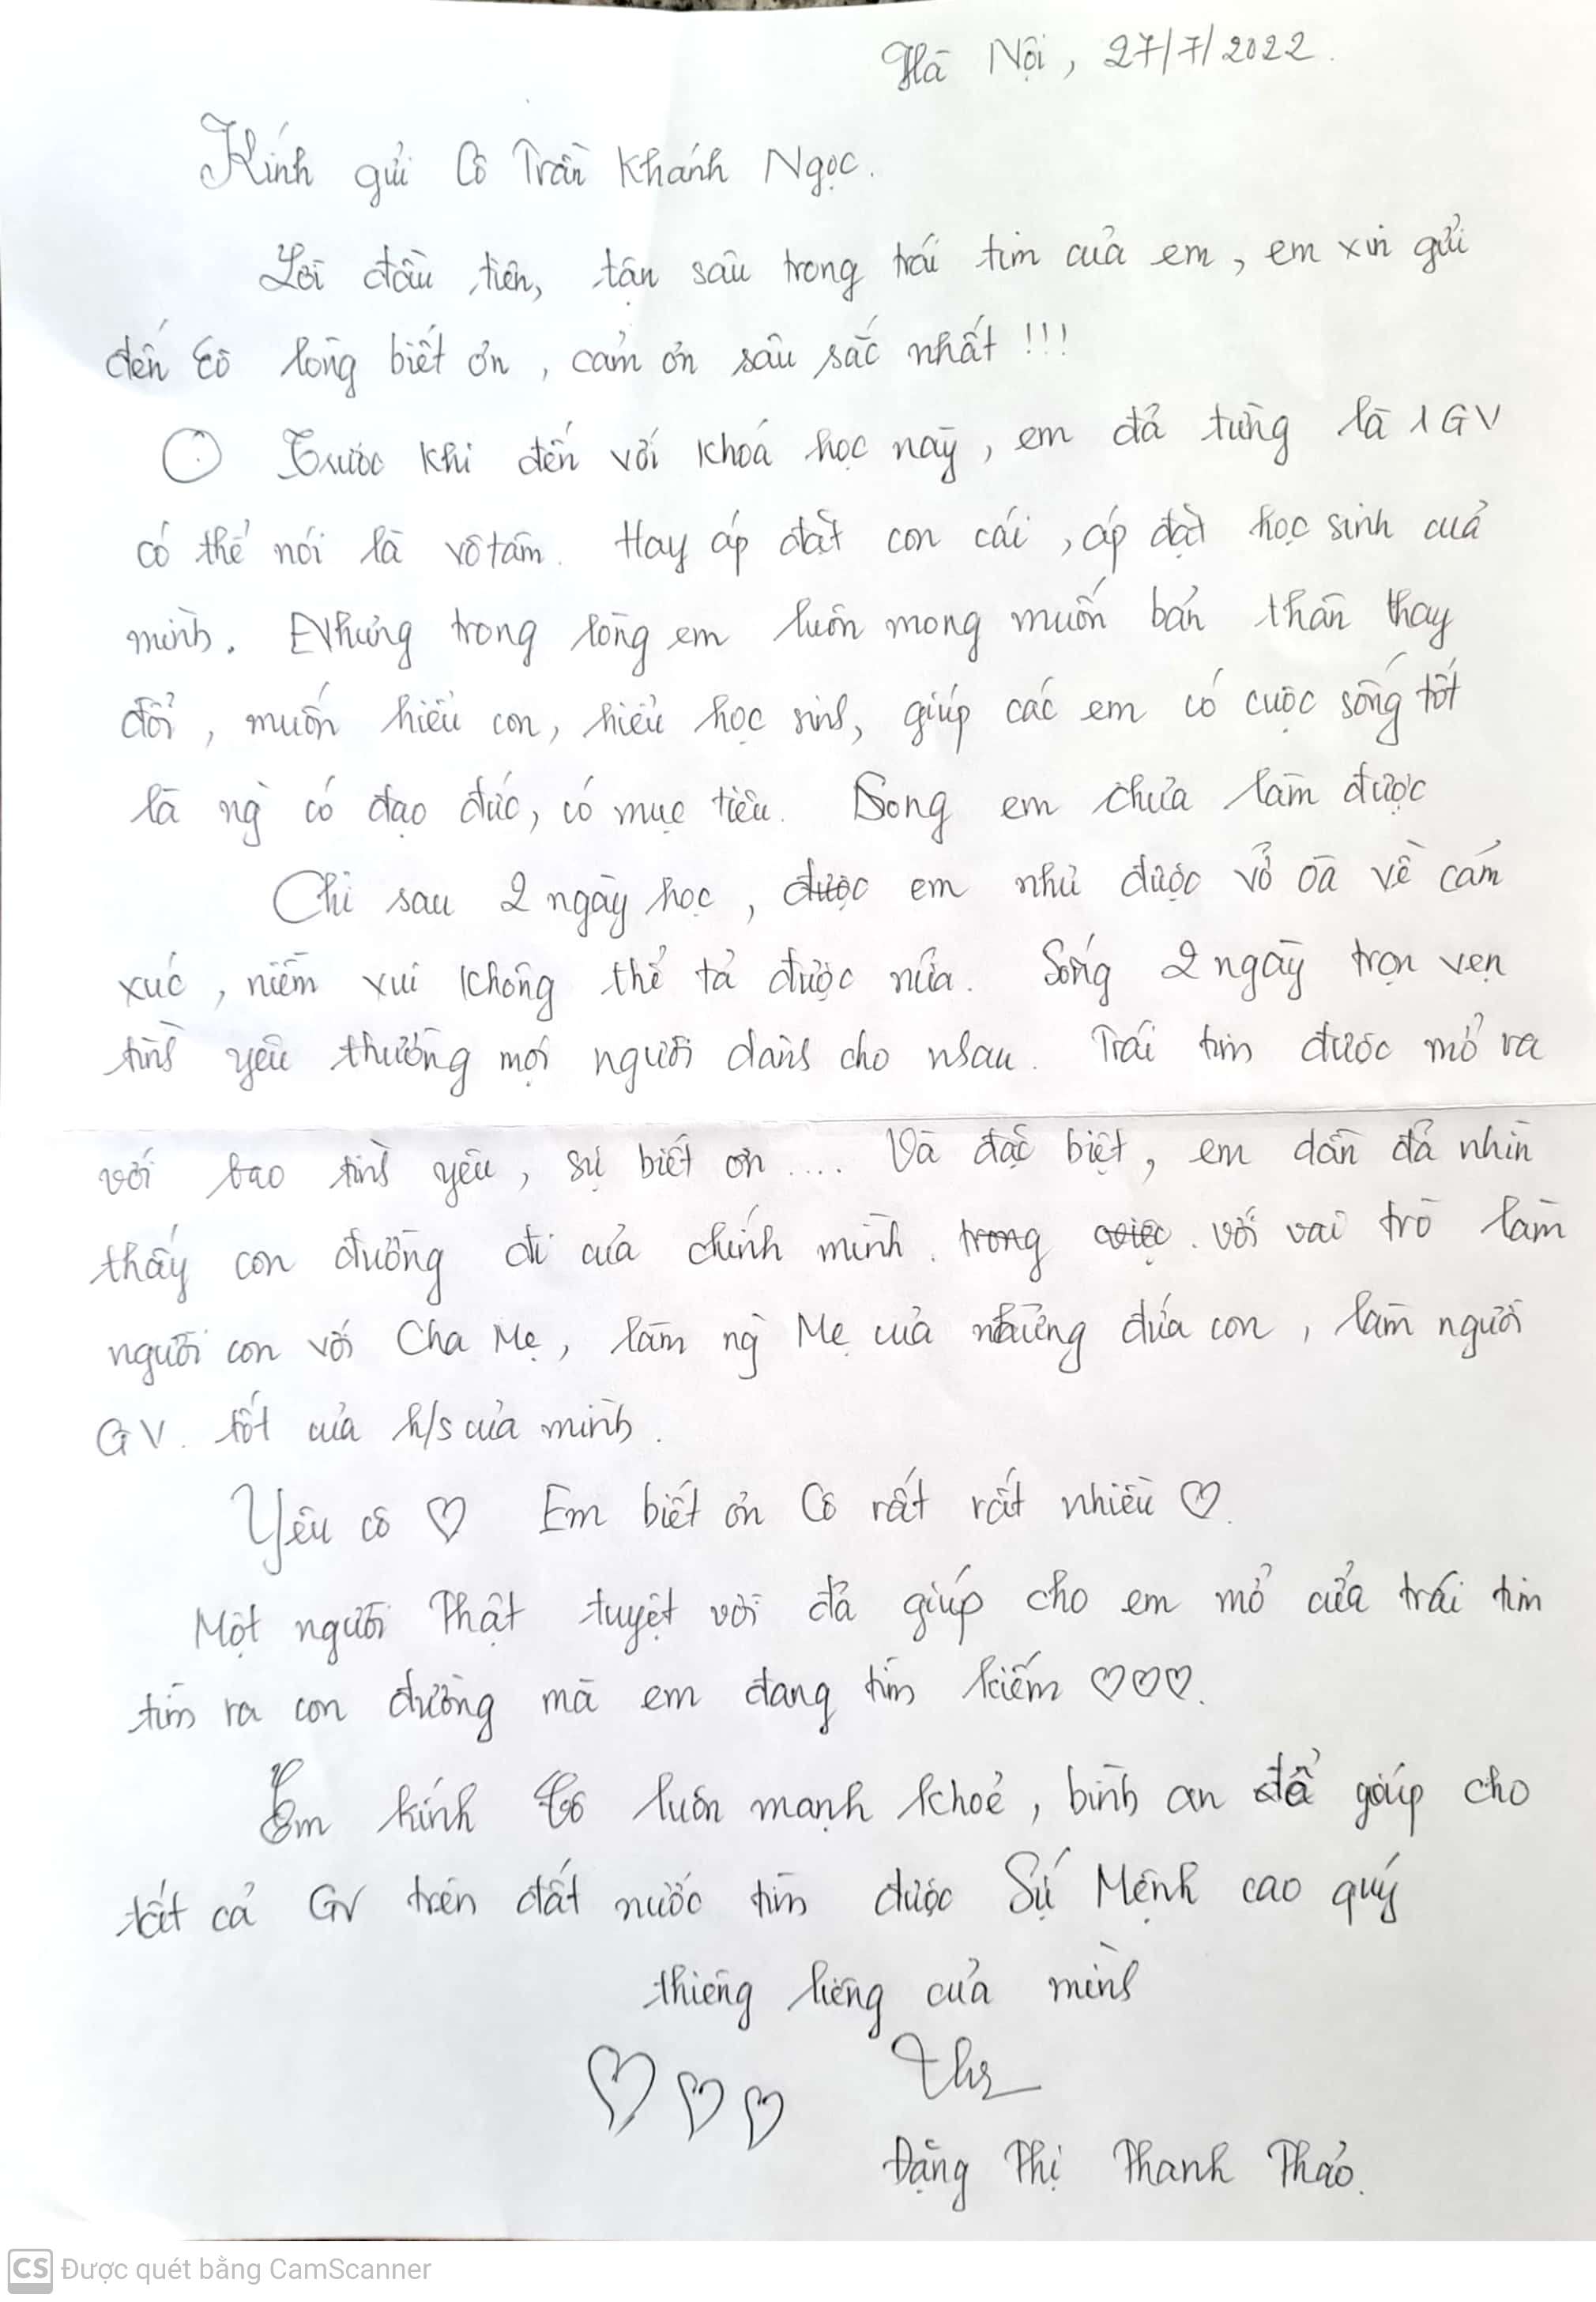 Hà Nội, 27/7/2022.
Kính gửi Cô Trần Khánh Ngọc.
Lời đầu tiên, tận sâu trong trái tim của em, em xin gửi
đến Cô lòng biết ơn, cảm ơn sâu sắc nhất !!!
Trước khi đến với khoá học này, em đã từng là 1 GV
có thể nói là vô tâm. Hay áp đặt con cái, áp đặt học sinh của
mình. Nhưng trong lòng em luôn mong muốn bản thân thay
đổi, muốn hiểu con, hiểu học sinh, giúp các em có cuộc sống tốt
là ng` có đạo đức, có mục tiêu. Song em chưa làm được
Chỉ sau 2 ngày học, được em như được vỡ oà về cảm
xúc, niềm vui không thể tả được nữa. Sống 2 ngày trọn vẹn
tình yêu thương mọi người dành cho nhau. Trái tim được mở ra
với bao tình yêu, sự biết ơn .... Và đặc biệt, em dần đã nhìn
thấy con đường đi của chính mình. trong việc. với vai trò làm
người con với Cha Mẹ, làm ng` Mẹ của những đứa con, làm người
GV. tốt của h/s của mình.
Yêu cô ♡ Em biết ơn Cô rất rất nhiều ♡.
Một người Thật tuyệt vời đã giúp cho em mở cửa trái tim
tìm ra con đường mà em đang tìm kiếm ♡♡♡.
Em kính Cô luôn mạnh khoẻ, bình an để giúp cho
tất cả GV trên đất nước tìm được Sứ Mệnh cao quý
thiêng liêng của mình
Đặng Thị Thanh Thảo.
CS Được quét bằng CamScanner